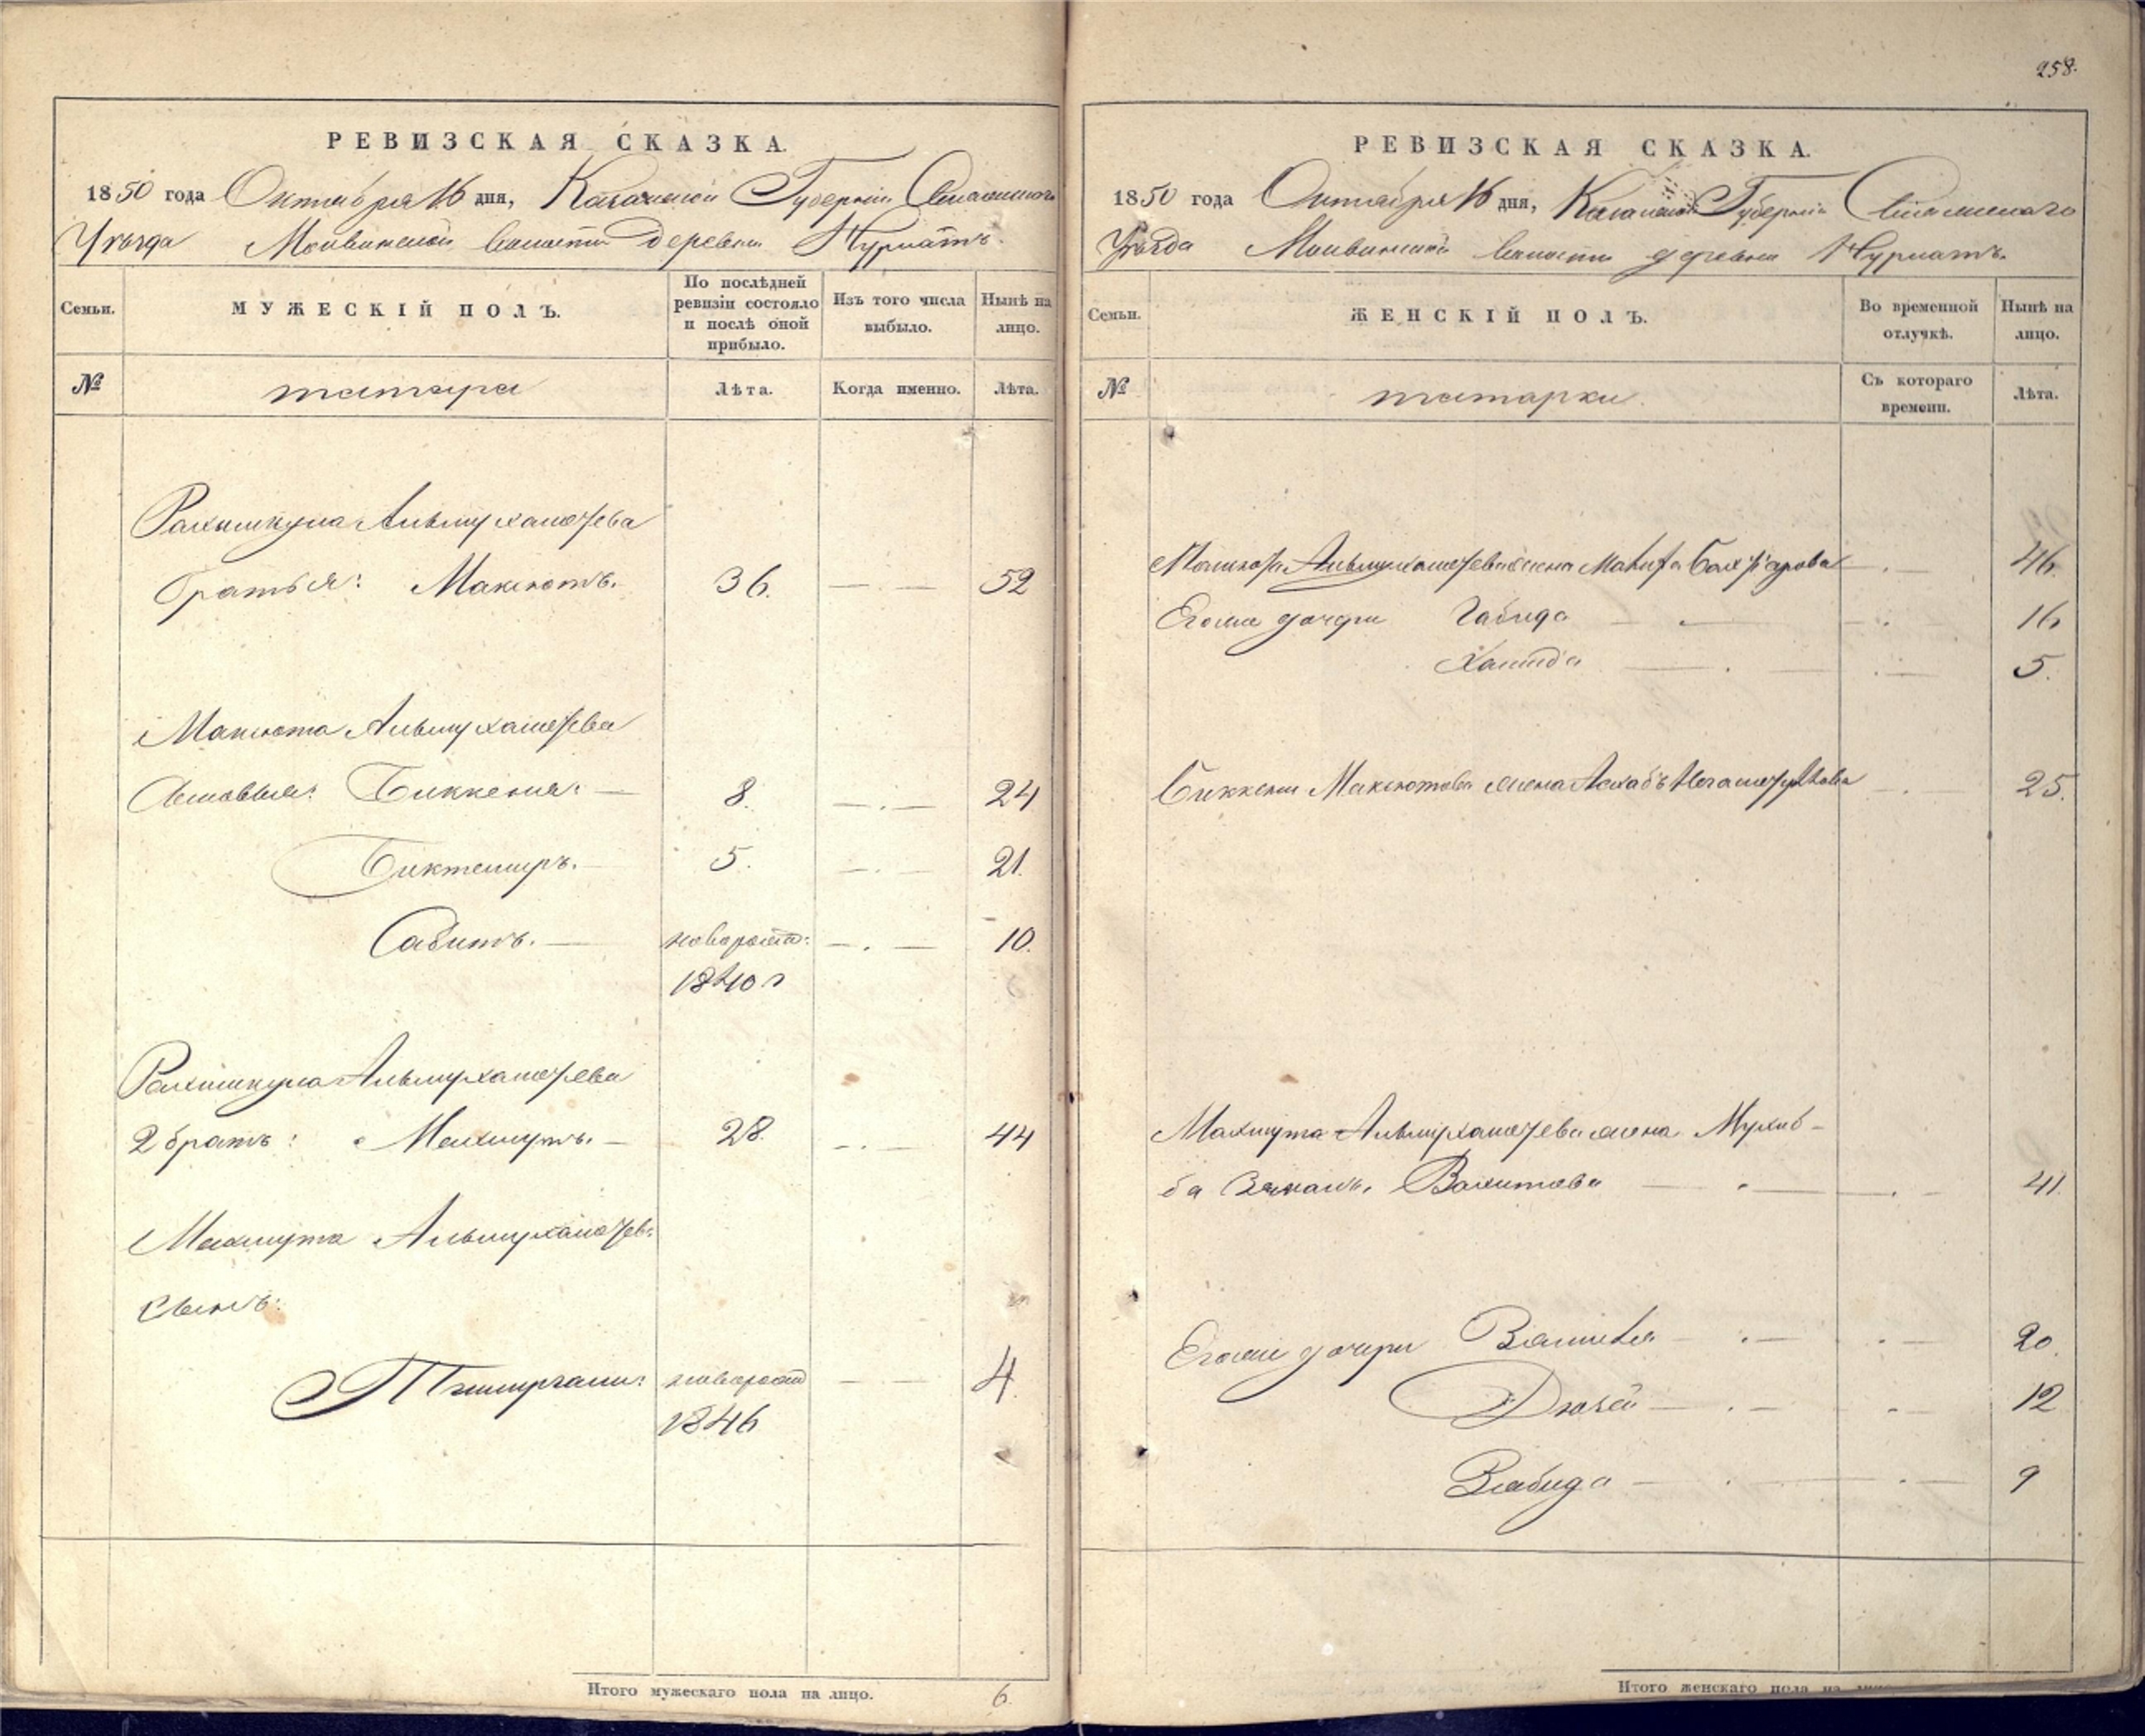 РЕВИЗСКАЯ СКАЗКА.
1850 года Октября 16 дня, Казанской Губернiи Спасскаго
Уѣзда Волости Деревни Нурлатъ.
Семьи.
МУЖЕСКIЙ ПОЛЪ.
По послѣдней ревизiи состояло и послѣ оной прибыло.
Изъ того числа выбыло.
Нынѣ на лицо.
№
татара
Лѣта.
Когда именно.
Лѣта.
Рахимкула Альмухаметева
братья: Максютъ. 36. 52
Максюта Альмухаметева
сыновья: Биккеня: 8. 24
Биктемиръ. 5. 21.
Сабитъ. новорожд: 10.
1840 г
Рахимкула Альмухаметева
2 братъ: Махмутъ. 28. 44
Махмута Альмухаметев:
сынъ:
новорожд 4.
1846
Итого мужескаго пола на лицо. 6.
258.
РЕВИЗСКАЯ СКАЗКА.
1850 года Октября 16 дня, Казанской Губернiи Спасскаго
Уѣзда Волости деревни Нурлатъ.
Семьи.
ЖЕНСКIЙ ПОЛЪ.
Во временной отлучкѣ.
Нынѣ на лицо.
№
татарки.
Съ котораго времени.
Лѣта.
Альмухаметева жена 46.
Егоже дочери Габида 16
Хамида 5.
Биккени Максютова жена 25.
Махмута Альмухаметева жена Мухиб-
ба Вахитова 41.
Егоже дочери 20.
12
Забида 9
Итого женскаго пола на лицо